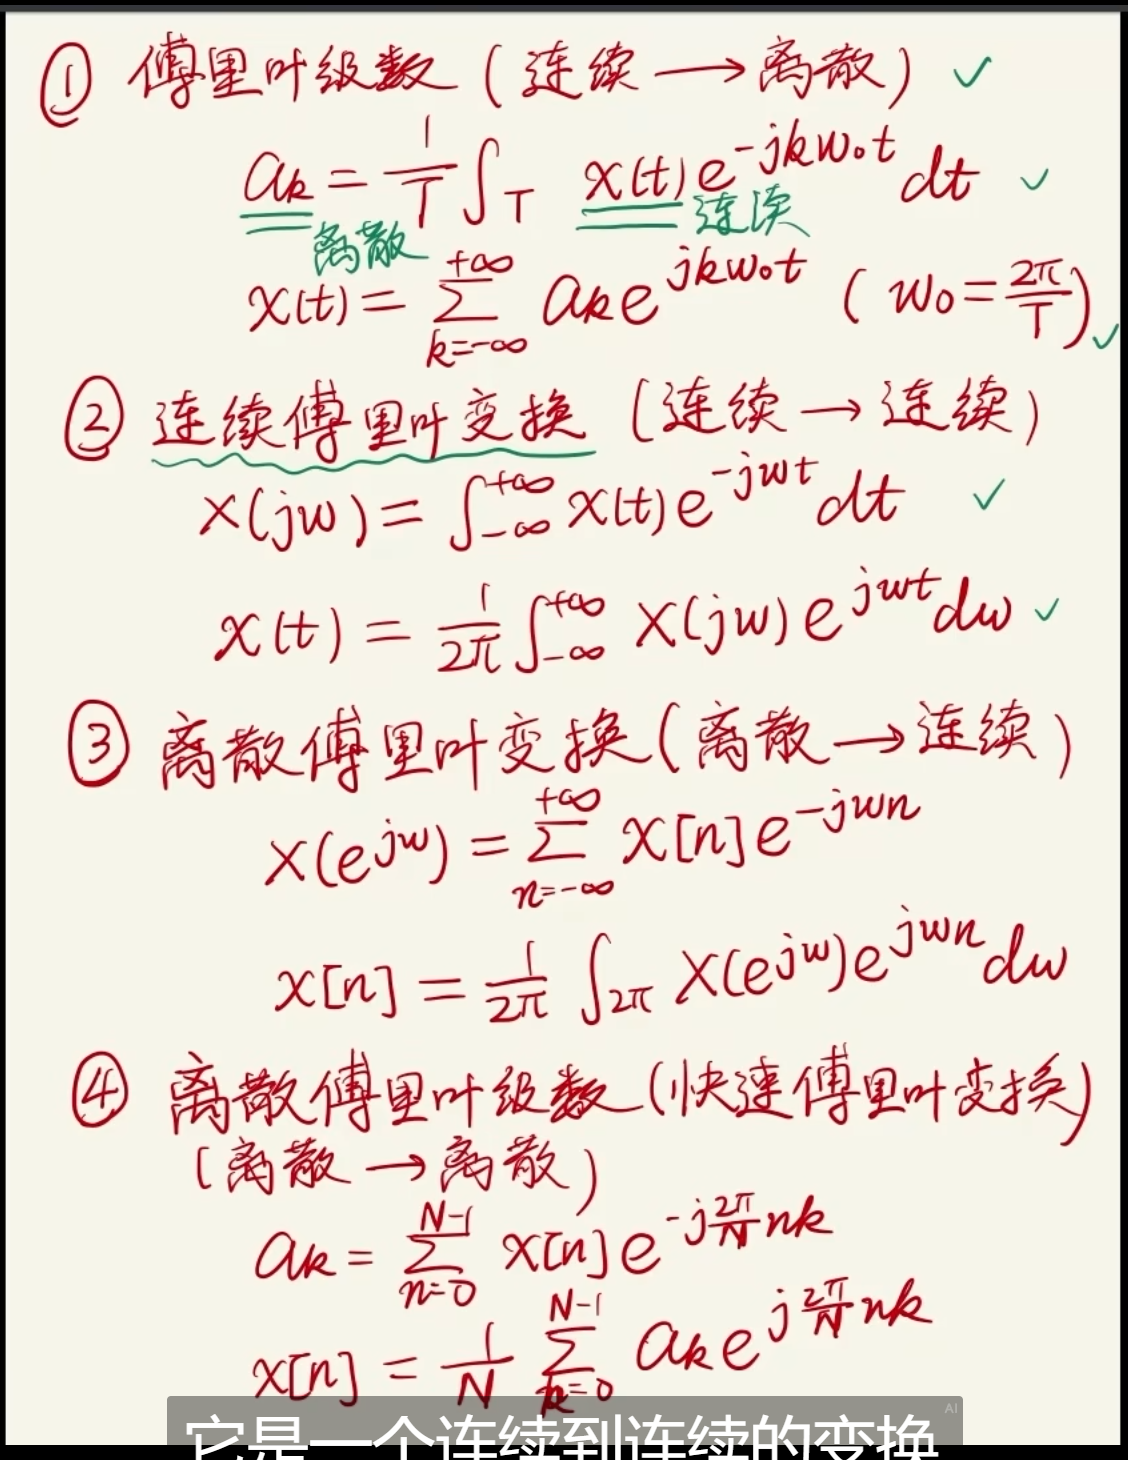 ① 傅里叶级数 (连续 → 离散) ✓
ak = 1/T ∫T x(t) e^-jkω0t dt ✓
离散 连续
x(t) = ∑_{k=-∞}^{+∞} ak e^jkω0t (ω0 = 2π/T) ✓
② 连续傅里叶变换 (连续 → 连续)
X(jω) = ∫_{-∞}^{+∞} x(t) e^-jωt dt ✓
x(t) = 1/2π ∫_{-∞}^{+∞} X(jω) e^jωt dω ✓
③ 离散傅里叶变换 (离散 → 连续)
X(e^jω) = ∑_{n=-∞}^{+∞} x[n] e^-jωn
x[n] = 1/2π ∫2π X(e^jω) e^jωn dω
④ 离散傅里叶级数 (快速傅里叶变换)
(离散 → 离散)
ak = ∑_{n=0}^{N-1} x[n] e^-j(2π/N)nk
x[n] = 1/N ∑_{k=0}^{N-1} ak e^j(2π/N)nk
AI
它是一个连续到连续的变换